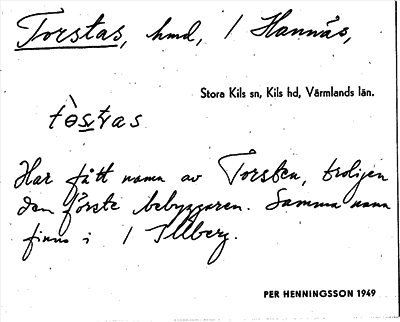 Torstas, hmd, / Hannäs,
Stora Kils sn, Kils hd, Värmlands län.
tὸstras
Har fått namn av Torsten, troligen
den förste bebyggaren. Samma namn
finns i / Illberg.
PER HENNINGSSON 1949